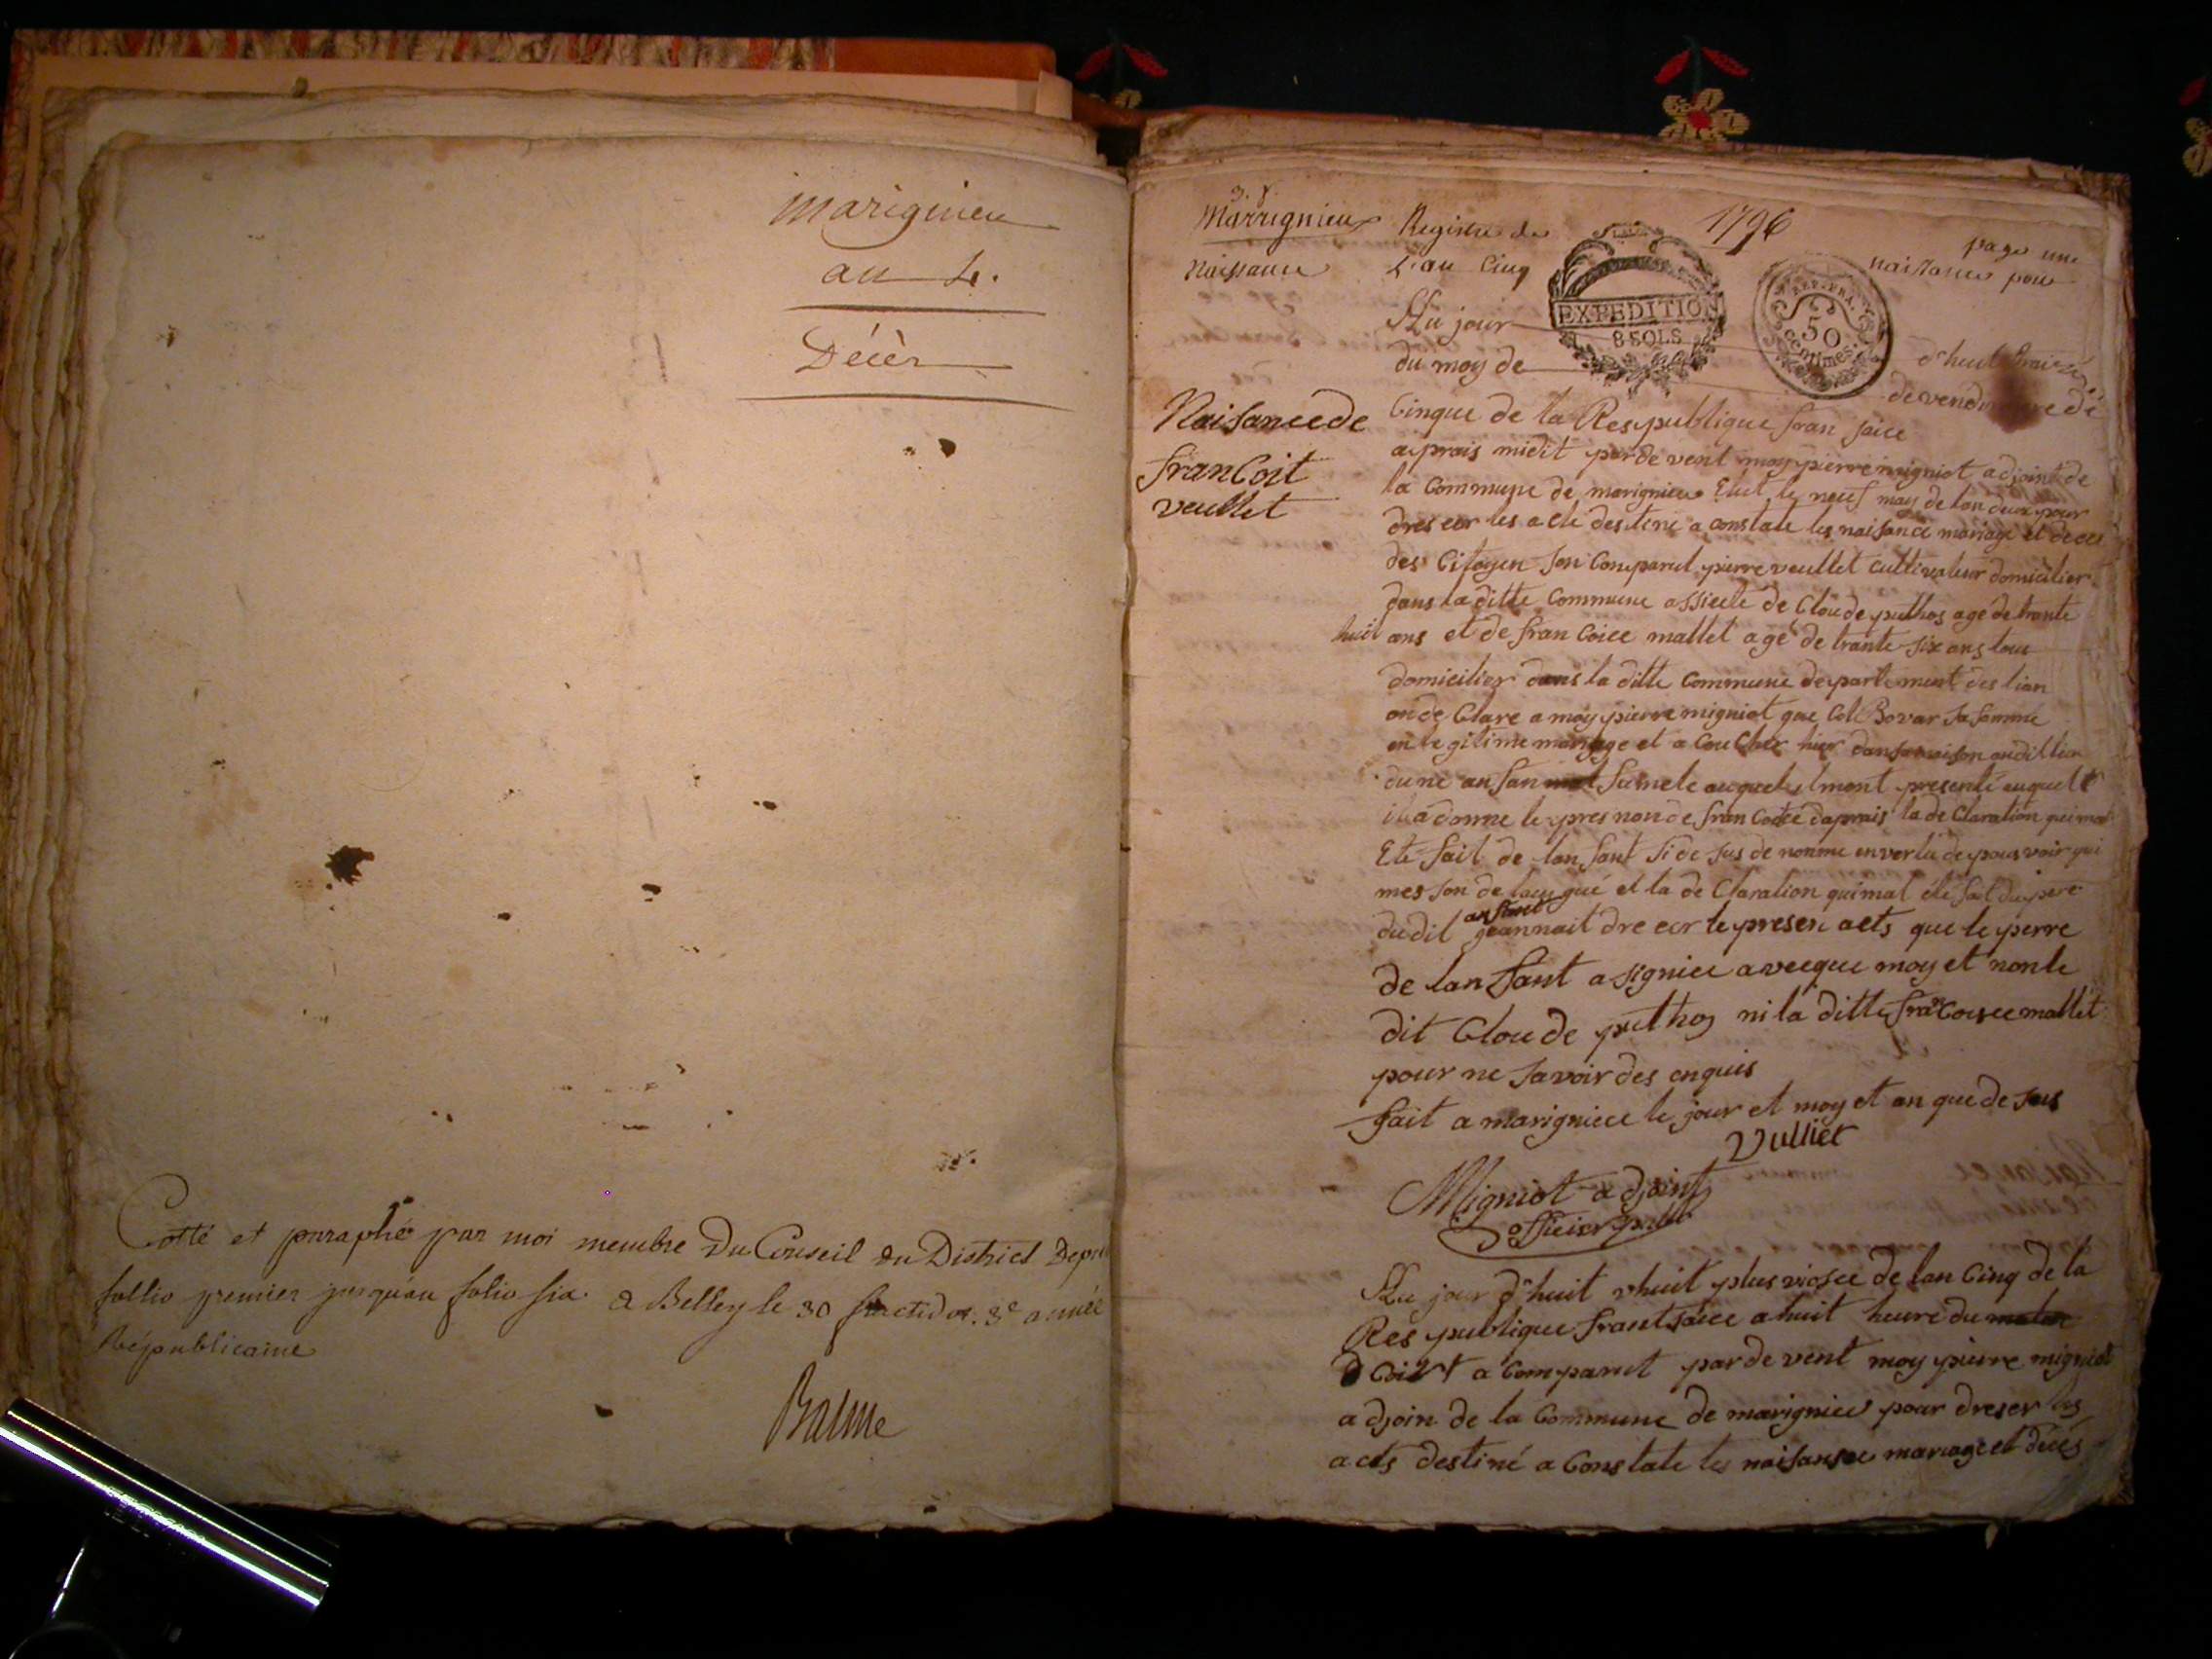 marignieu
an 4.
Décès
Cotté et paraphé par moi membre Du Conseil du District Depui
follio premier jusqu'au folio six. a Belley le 30 fructidor. 3e année
Républicaine
Balme
Marrignieux Registre de 1796 page une
Naissance L'an Cinq naissance pour
EXPEDITION
8 SOLS
REP. FRA.
50
centimes
Au jour d'huit
du moy de de vendimiere de
Naisance de
franCoit
veullet
Cinque de la Respublique fran saice
aprais midit par de vent moy pierre migniot adjoint de
la Commune de marignieu Elut le neuf may de lan deux pour
dres eer les acte destiné a constate les naisance mariage et deces
des Citoyen son Comparut pierre veullet Cultivateur domicilier
dans la ditte Commune assisté de Cloude puthos age de trante
huit ans et de fran Coice mallet age de trante six ans tous
domicilier dans la ditte Commune departement des lian
on de Clare a moy pierre migniot que Bovar sa femme
en legitime mariage et a Coucher hier dans sa maison audit lieu
dune anfan fumele auquel ilmont presenté auquelle
il a donne le pres non de fran Coice daprais la de Claration qui mat
Eté fait de lanfant si de sus de nomme en vertu de pous voir qui
mes son de laigué et la de Claration qui mat été fait du pere
du dit anfant jeannait dre eer le presen acts que le perre
de lanfant a signiee avecque moy et non le
dit Cloude puthos ni la ditte franCoisee mallet
pour ne savoir des enquis
fait a marigniece le jour et moy et an que de sus
Vulliet
Migniot adjoint
officier publ
Au jour d'huit vhuit plus viosee de lan Cinq de la
Res publique frantsaice a huit heure du
a Comparut par de vent moy pierre migniot
a djoin de la Commune de marignieu pour dreser les
acts destiné a Constate les naisansee mariage et décés